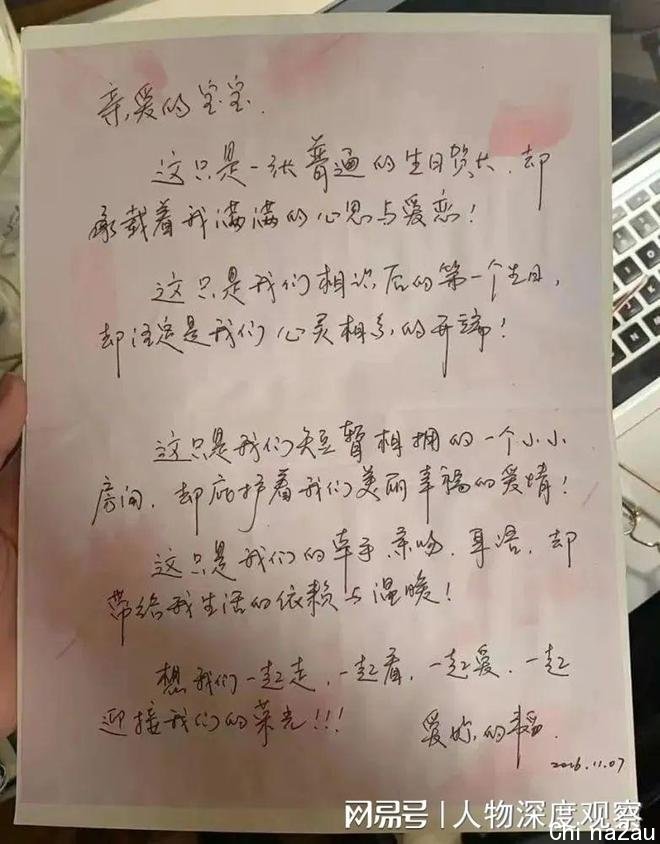 亲爱的宝宝.
这只是一张普通的生日贺卡.却
承载着我满满的心思与爱恋!
这只是我们相识后的第一个生日,
却注定是我们心灵相系的开端!
这只是我们短暂相拥的一个小小
房间,却庇护着我们美丽幸福的爱情!
这只是我们的牵手.亲吻.耳语.却
带给我生活的依赖与温暖!
想我们一起走,一起看,一起爱.一起
迎接我们的荣光!!!
爱你的
2016.11.07
网易号 | 人物深度观察
Chi na2au